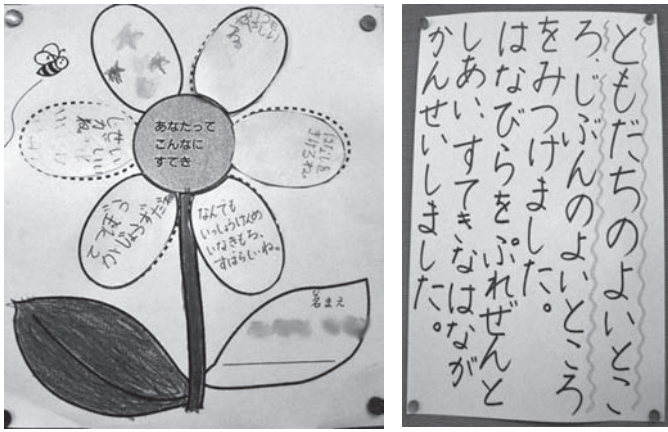 あなたって
こんなに
すてき
なんでも
いっしょうけんめ
いなきもち、
すばらしいね。
名まえ
ともだちのよいとこ
ろ、じぶんのよいところ
をみつけました。
はなびらをぷれぜんと
しあい、すてきなはなが
かんせいしました。